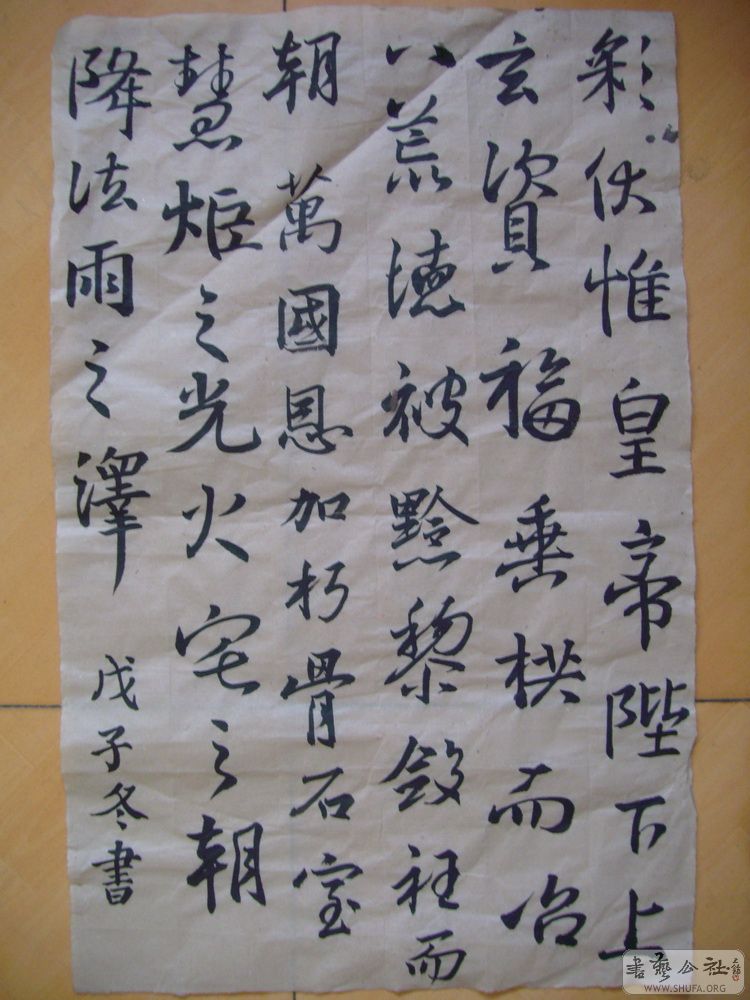 彩伏惟皇帝陛下上
玄資福垂拱而治
八荒德被黔黎斂衽而
朝萬國恩加朽骨石室
慧炬之光火宅之朝
降法雨之澤
戊子冬書
書藝公社
WWW.SHUFA.ORG